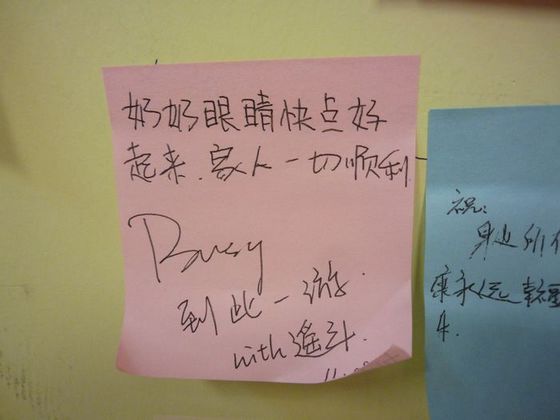 奶奶眼睛快点好
起来.家人一切顺利
Bussy
到此一游.
with 遥斗.
祝:
身边所有
亲永远幸福